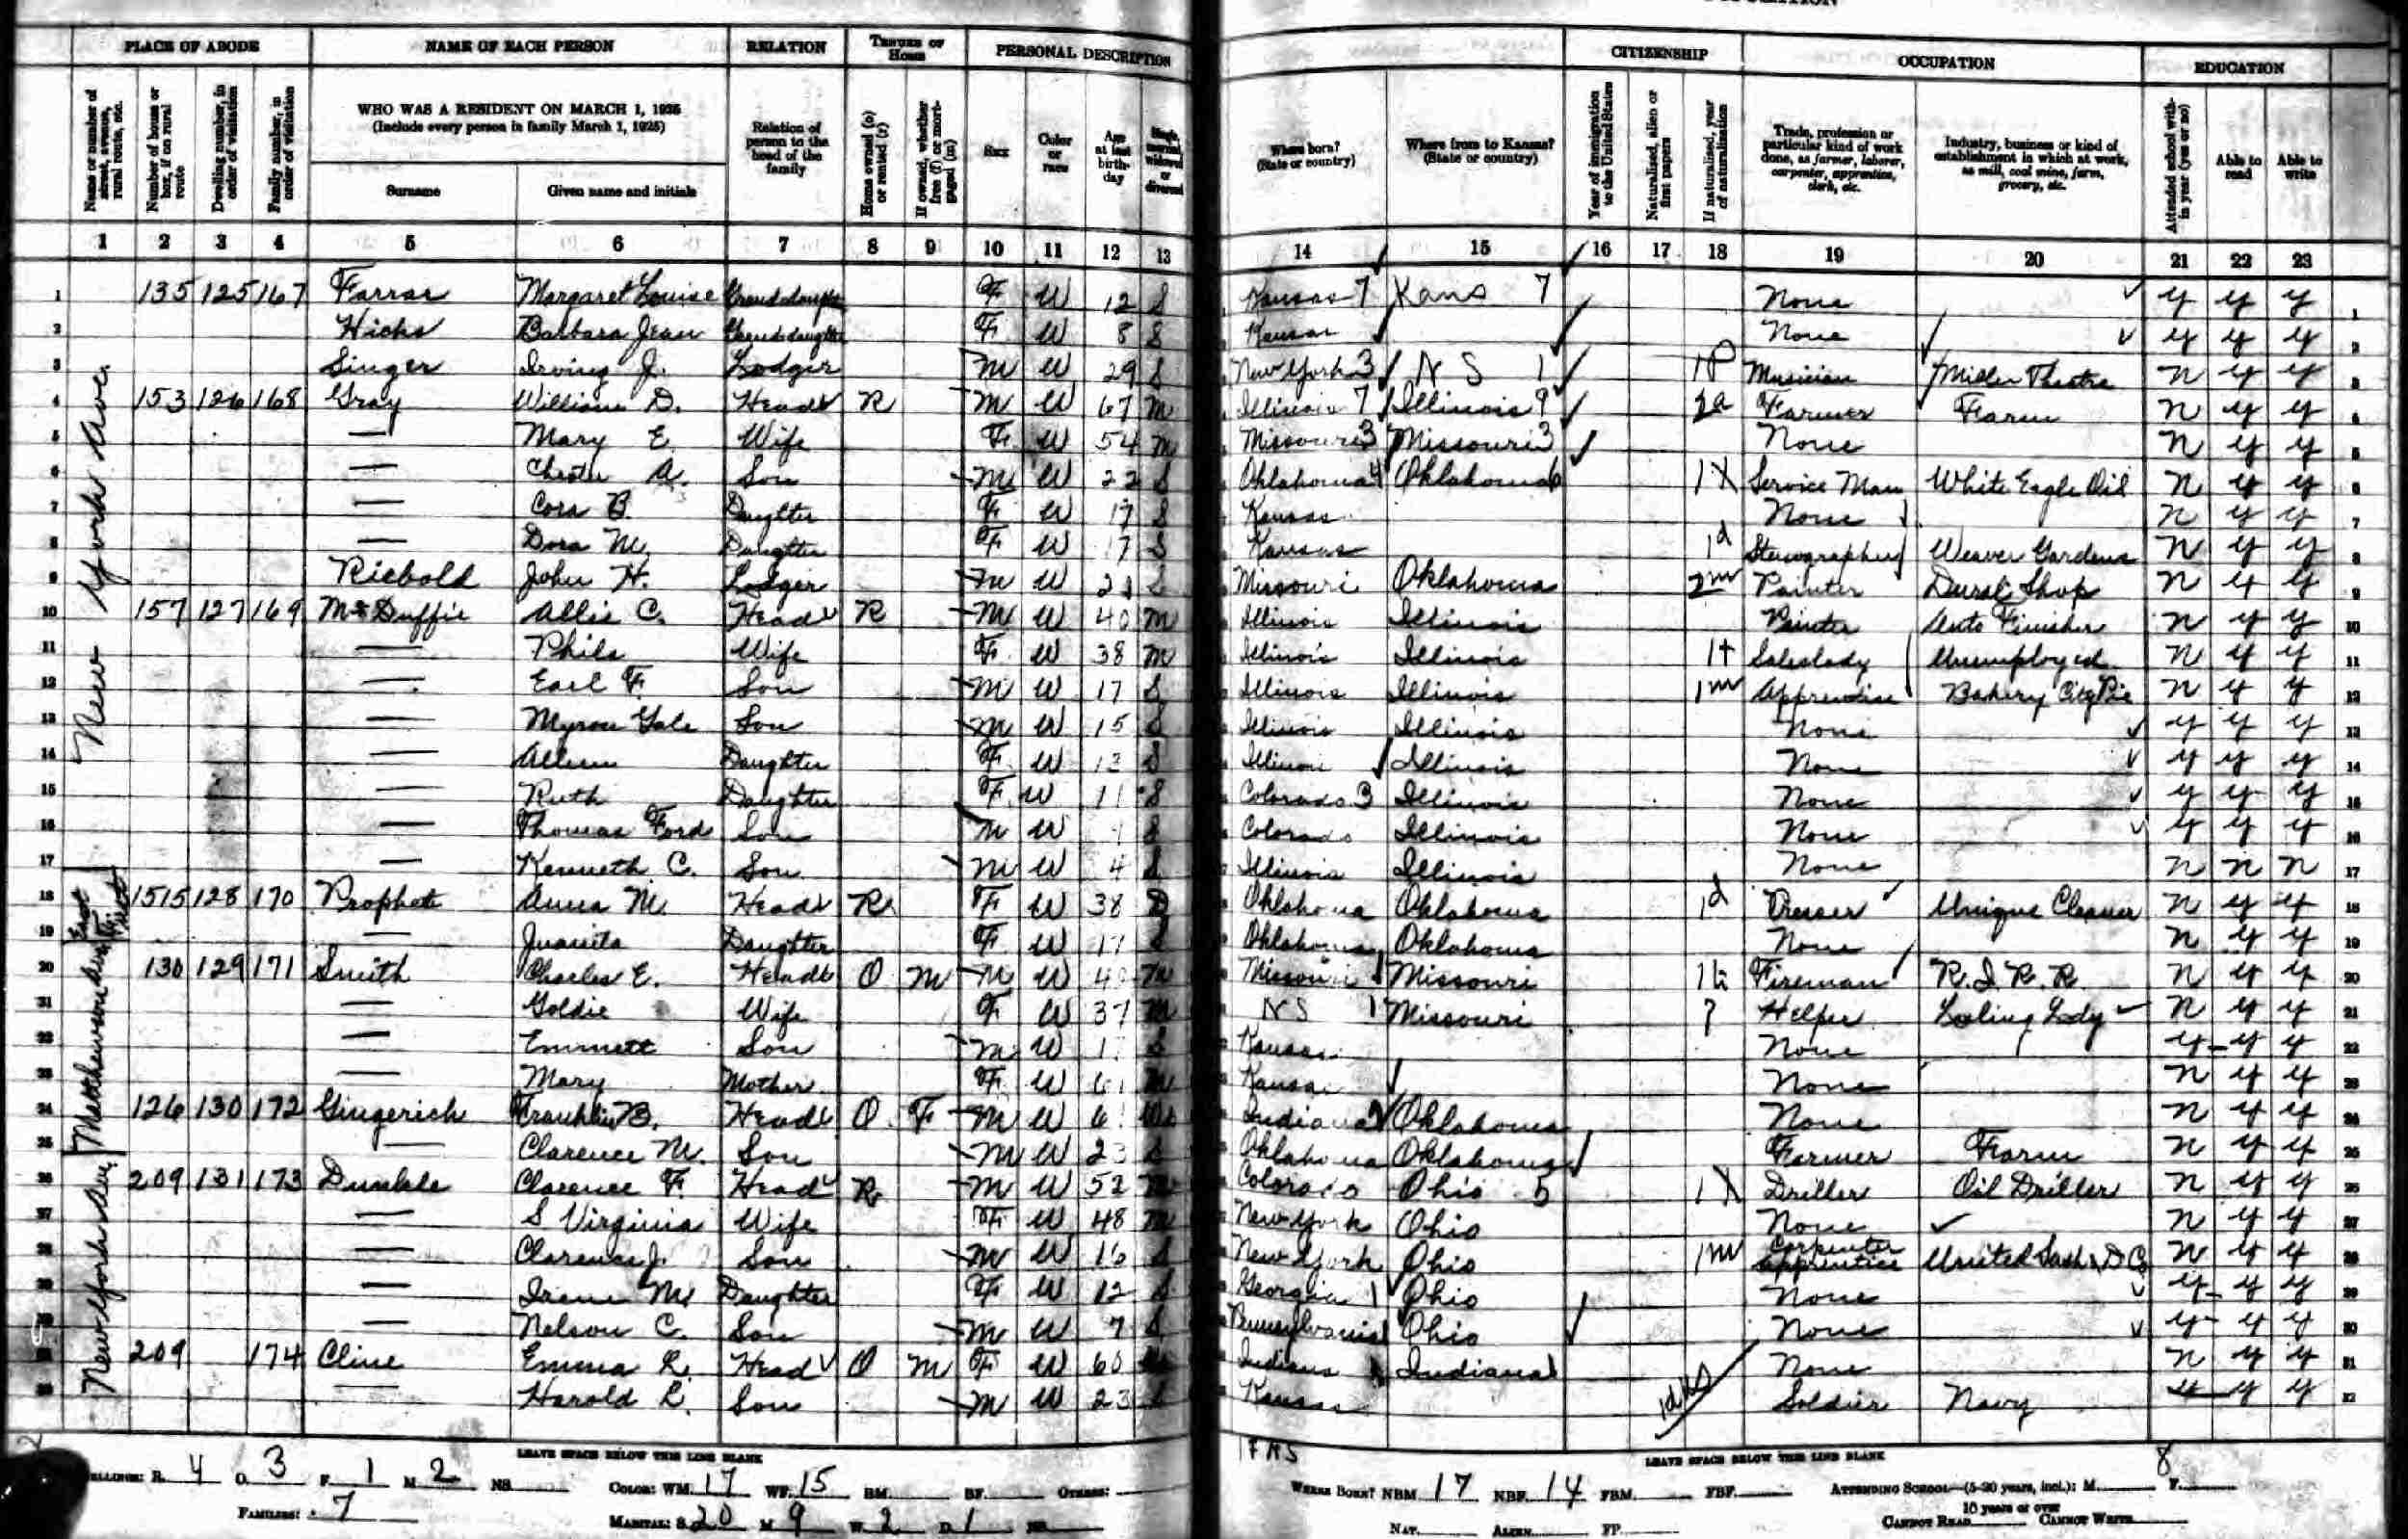 PLACE OF ABODE NAME OF EACH PERSON RELATION TENURE OF HOME PERSONAL DESCRIPTION CITIZENSHIP OCCUPATION EDUCATION
Name or number of street, avenue, rural route, etc. Number of house or box, if on rural route Dwelling number, in order of visitation Family number, in order of visitation WHO WAS A RESIDENT ON MARCH 1, 1925 (Include every person in family March 1, 1925) Surname Given name and initials Relation of person to the head of the family Home owned (o) or rented (r) If owned, whether free (f) or mortgaged (m) Sex Color or race Age at last birthday Single, married, widowed or divorced Where born? (State or country) Where from to Kansas? (State or country) Year of immigration to the United States Naturalized, alien or first papers If naturalized, year of naturalization Trade, profession or particular kind of work done, as farmer, laborer, carpenter, apprentice, clerk, etc. Industry, business or kind of establishment in which at work, as mill, coal mine, farm, grocery, etc. Attended school within year (yes or no) Able to read Able to write
1 2 3 4 5 6 7 8 9 10 11 12 13 14 15 16 17 18 19 20 21 22 23
New York Ave.
1 135 125 167 Farrar Margaret Louise Granddaughter F W 12 S Kansas 7 Kans 7 None y y y 1
2 Hicks Barbara Jean Granddaughter F W 8 S Kansas None y y y 2
3 Singer Irving J. Lodger M W 29 S New York 3 N S 1 Musician Miller Theatre n y y 3
4 153 126 168 Gray William D. Head R M W 67 M Illinois 7 Illinois 9 2a Farmer Farm n y y 4
5 — Mary E. Wife F W 54 M Missouri 3 Missouri 3 None n y y 5
6 — Chester A. Son M W 22 S Oklahoma 4 Oklahoma 6 Service Man White Eagle Oil n y y 6
7 — Cora B. Daughter F W 17 S Kansas None n y y 7
8 — Dora M. Daughter F W 17 S Kansas 1d Stenographer Weaver Gardens n y y 8
9 Riebold John H. Lodger M W S Missouri Oklahoma 2m Painter Shop n y y 9
10 157 127 169 McDuffie Allie C. Head R M W 40 M Illinois Illinois Painter Auto Finisher n y y 10
11 — Phila Wife F W 38 M Illinois Illinois 1t Saleslady Unemployed n y y 11
12 — Earl F. Son M W 17 S Illinois Illinois 1m Apprentice Bakery City Pie n y y 12
13 — Myron Gale Son M W 15 S Illinois Illinois None y y y 13
14 — Daughter F W 13 S Illinois Illinois None y y y 14
15 — Ruth Daughter F W 11 S Colorado 3 Illinois None y y y 15
16 — Thomas Ford Son M W S Colorado Illinois None y y y 16
17 — Kenneth C. Son M W 4 S Illinois Illinois None n n n 17
East First
18 1515 128 170 Prophete Anna M. Head R F W 38 D Oklahoma Oklahoma 1d Presser Unique Cleaner n y y 18
Matthewson Ave
19 — Juanita Daughter F W 17 S Oklahoma Oklahoma None n y y 19
20 130 129 171 Smith Charles E. Head O M M W M Missouri Missouri Fireman R. I. R. R. n y y 20
21 — Goldie Wife F W 37 M N S 1 Missouri Helper n y y 21
22 — Emmett Son M W S Kansas None y y y 22
23 — Mary Mother F W 61 Kansas None n y y 23
24 126 130 172 Gingerich Franklin B. Head O F M W Indiana 2 Oklahoma None n y y 24
25 — Clarence M. Son M W 23 S Oklahoma Oklahoma Farmer Farm n y y 25
New York Ave.
26 209 131 173 Dunkle Clarence F. Head R M W 52 M Colorado Ohio 5 Driller Oil Driller n y y 26
27 — S Virginia Wife F W 48 M New York Ohio None n y y 27
28 — Clarence J. Son M W 16 S New York Ohio 1m Carpenter apprentice United Sash & D Co n y y 28
29 — Irene M. Daughter F W 12 S Georgia 1 Ohio None y y y 29
30 — Nelson C. Son M W 7 S Pennsylvania 1 Ohio None y y y 30
31 209 174 Cline Emma R. Head O M F W 60 Indiana Indiana 1 None n y y 31
32 — Harold R. Son M W 23 S Kansas Soldier Navy y y y 32
LEAVE SPACE BELOW THIS LINE BLANK 1 F NS LEAVE SPACE BELOW THIS LINE BLANK
R. 4 O. 3 F. 1 M. 2 NS. COLOR: WM. 17 WF. 15 BM. BF. OTHERS: WHERE BORN? NBM. 17 NBF. 14 FBM. FBF. ATTENDING SCHOOL—(5-20 years, incl.): M. 8 F.
FAMILIES: 7 MARITAL: S. 20 M. 9 W. 2 D. 1 NS. NAT. ALIEN. FP. 10 years or over CANNOT READ CANNOT WRITE